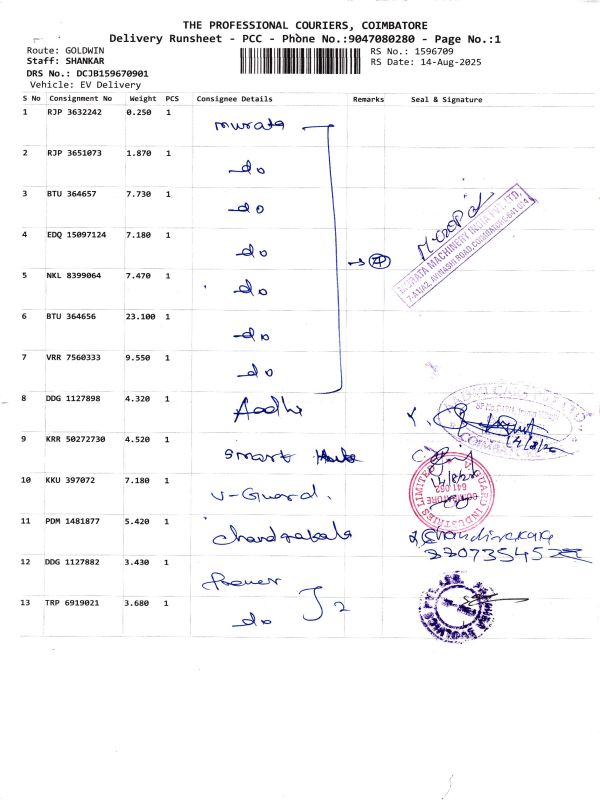 THE PROFESSIONAL COURIERS, COIMBATORE
Delivery Runsheet - PCC - Phone No.:9047080280 - Page No.:1
Route: GOLDWIN
RS No.: 1596709
Staff: SHANKAR
RS Date: 14-Aug-2025
DRS No.: DCJB159670901
Vehicle: EV Delivery
S No Consignment No Weight PCS Consignee Details Remarks Seal & Signature
1 RJP 3632242 0.250 1 murata
2 RJP 3651073 1.870 1 do
3 BTU 364657 7.730 1 do
MURATA MACHINERY INDIA PVT. LTD.
7-A1/A2, AVINASHI ROAD, COIMBATORE-641 014
4 EDQ 15097124 7.180 1 do
5 NKL 8399064 7.470 1 do
6 BTU 364656 23.100 1 do
7 VRR 7560333 9.550 1 do
8 DDG 1127898 4.320 1 Aadhi
9 KRR 50272730 4.520 1 smart
10 KKU 397072 7.180 1 V-Guard.
V GUARD INDUSTRIES LIMITED
COIMBATORE
641 062
11 PDM 1481877 5.420 1 chandrakala
12 DDG 1127882 3.430 1
13 TRP 6919021 3.680 1 do 2